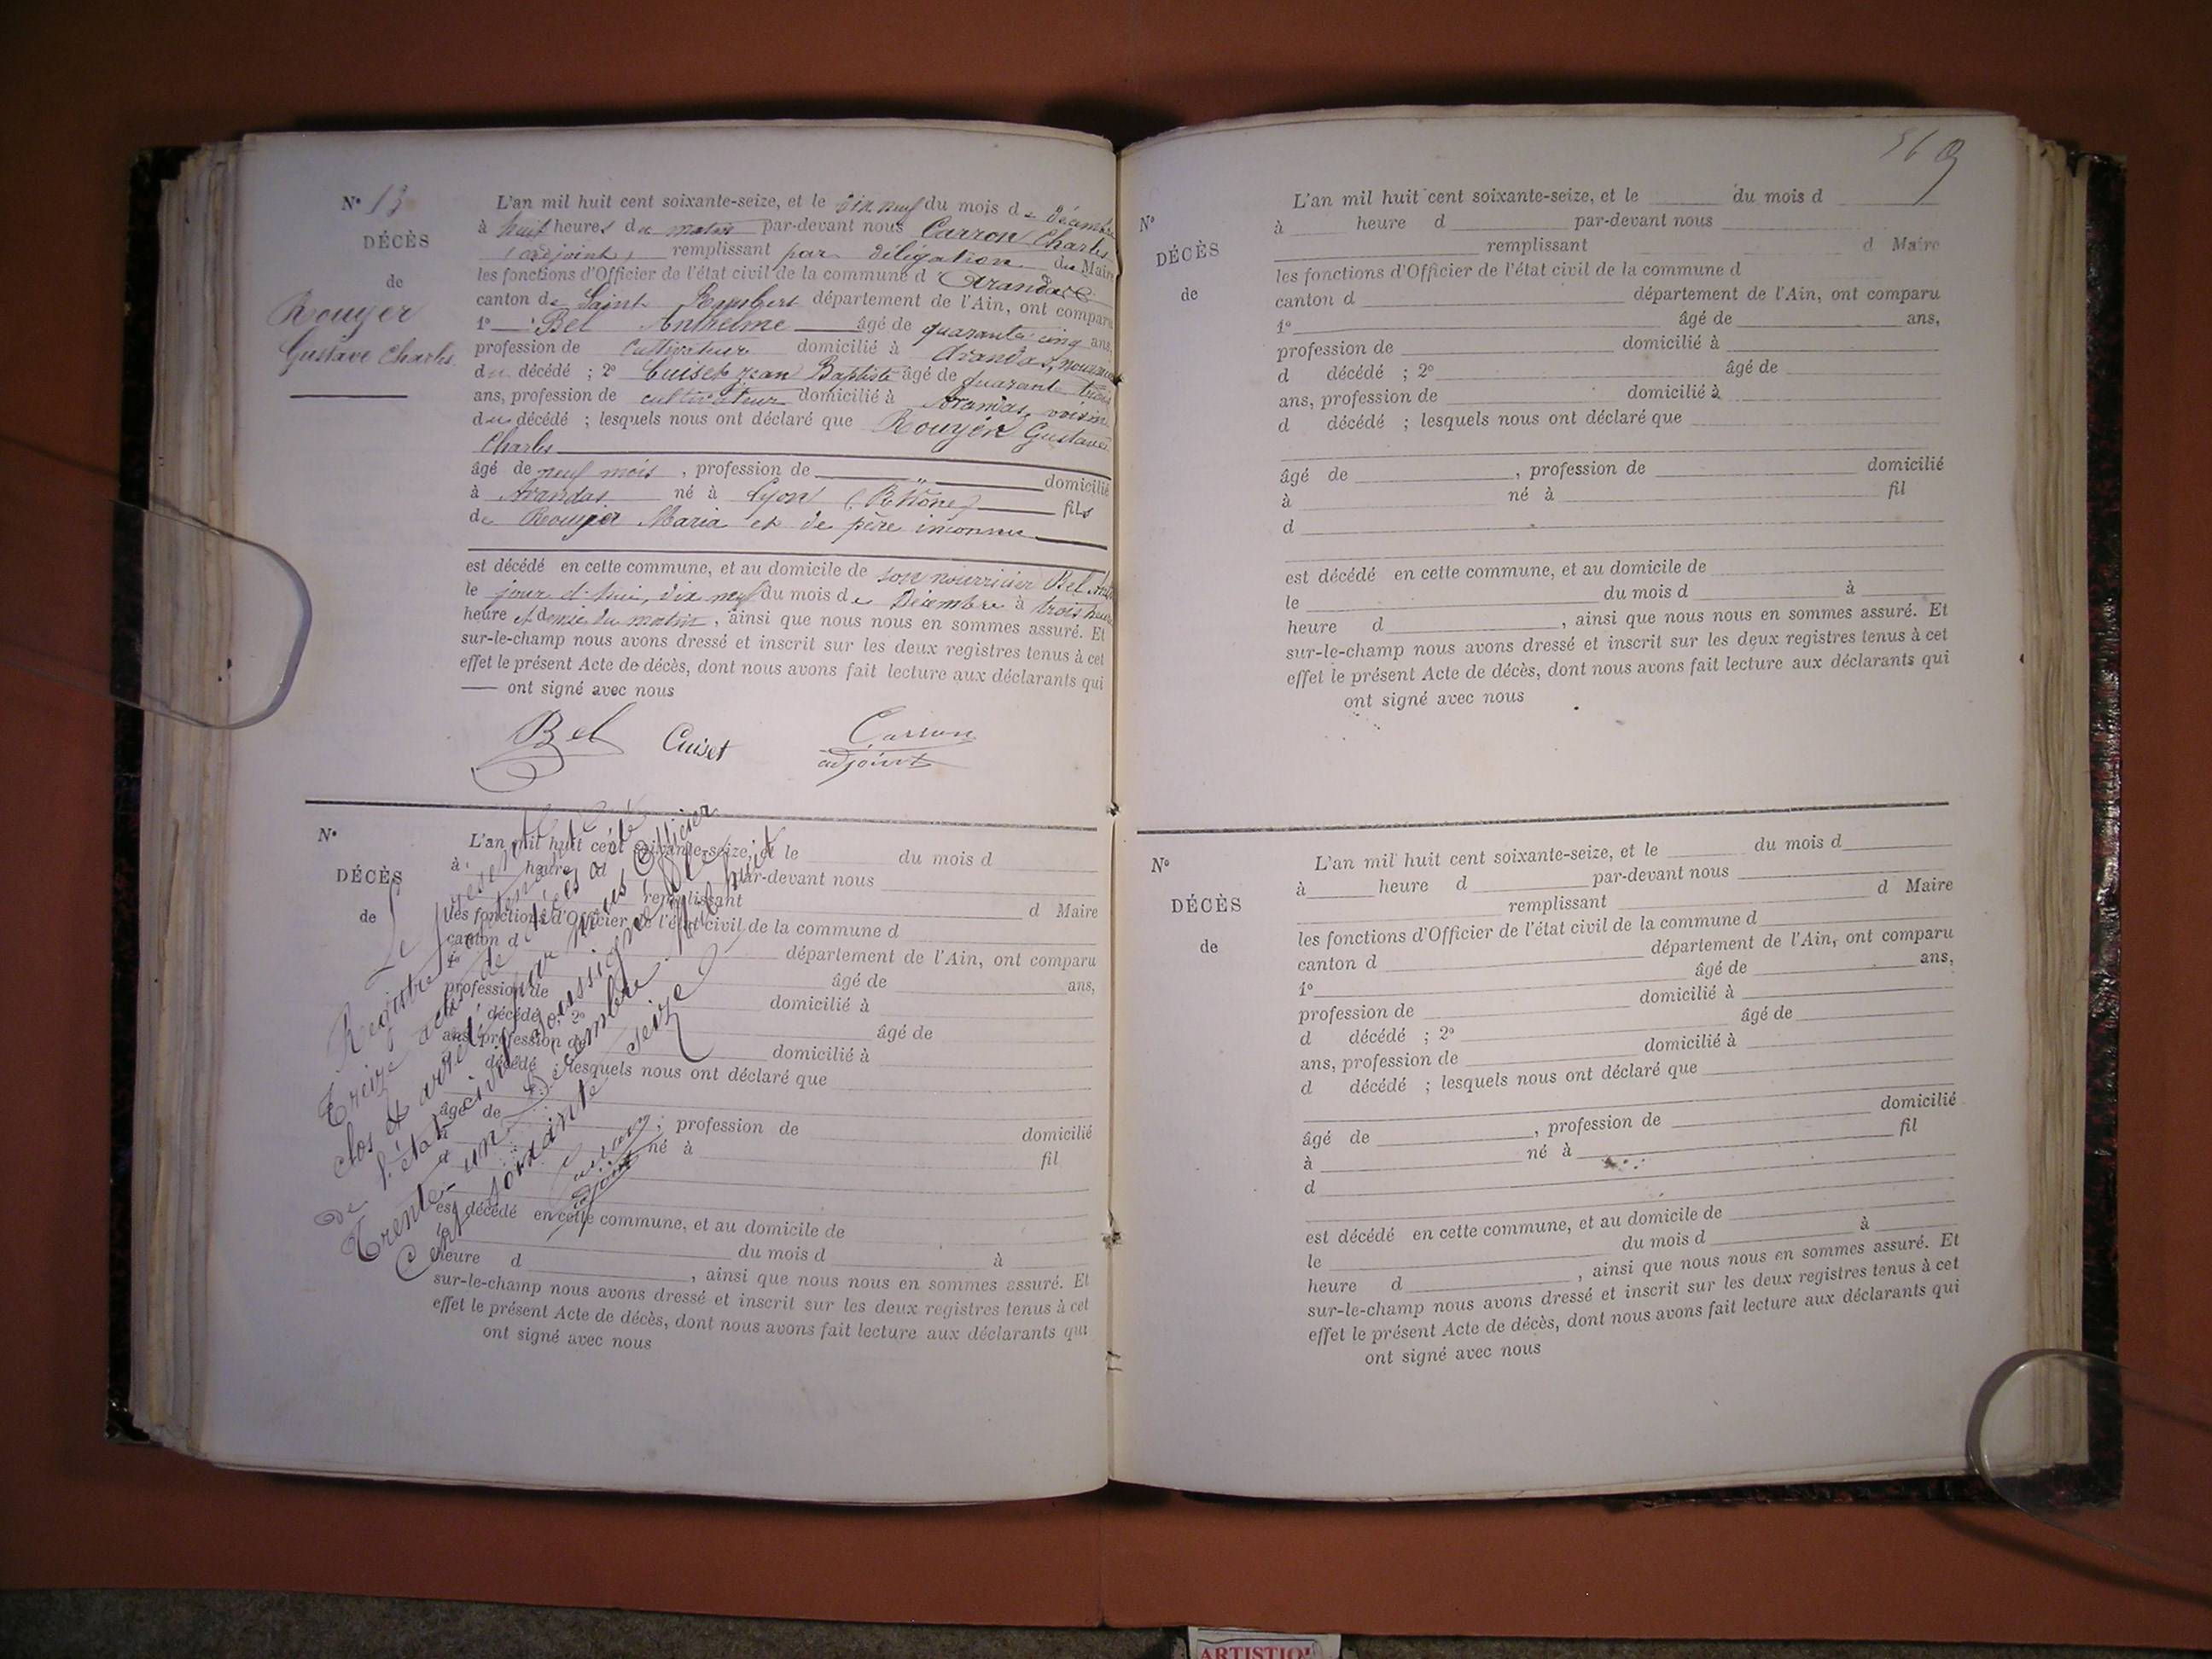 N° 13
DÉCÈS
de
Rouyer
Gustave Charles
L'an mil huit cent soixante-seize, et le dix neuf du mois de décembre
à huit heures du matin par-devant nous Carron Charles
adjoint, remplissant par délégation du Maire
les fonctions d'Officier de l'état civil de la commune d'Arandas
canton de Saint Rambert département de l'Ain, ont comparu
1° Bel Anthelme âgé de quarante-cinq ans,
profession de cultivateur domicilié à Arandas, nourricier
du décédé ; 2° Cuiset Jean Baptiste âgé de quarante trois
ans, profession de cultivateur domicilié à Arandas, voisin
du décédé ; lesquels nous ont déclaré que Rouyer Gustave
Charles
âgé de neuf mois, profession de " domicilié
à Arandas né à Lyon (Rhône) fils
de Rouyer Maria et de père inconnu
est décédé en cette commune, et au domicile de son nourricier Bel
le jour d'hui, dix neuf du mois de Décembre à trois heures
heure et demie du matin, ainsi que nous nous en sommes assuré. Et
sur-le-champ nous avons dressé et inscrit sur les deux registres tenus à cet
effet le présent Acte de décès, dont nous avons fait lecture aux déclarants qui
ont signé avec nous
Bel Cuiset Carron
adjoint
N°
DÉCÈS
de
L'an mil huit cent soixante-seize, et le du mois d
à heure d par-devant nous
remplissant d Maire
les fonctions d'Officier de l'état civil de la commune d
canton d département de l'Ain, ont comparu
1° âgé de ans,
profession de domicilié à
d décédé ; 2° âgé de
ans, profession de domicilié à
d décédé ; lesquels nous ont déclaré que
âgé de , profession de domicilié
à né à fil
d
est décédé en cette commune, et au domicile de
le du mois d à
heure d , ainsi que nous nous en sommes assuré. Et
sur-le-champ nous avons dressé et inscrit sur les deux registres tenus à cet
effet le présent Acte de décès, dont nous avons fait lecture aux déclarants qui
ont signé avec nous
Le présent
Registre contenant
Treize actes de décès a été
clos et arrêté par nous Officier
de l'état civil soussigné le
Trente un Décembre mil huit
Cent soixante seize
Carron
adjoint
369
N°
DÉCÈS
de
L'an mil huit cent soixante-seize, et le du mois d
à heure d par-devant nous
remplissant d Maire
les fonctions d'Officier de l'état civil de la commune d
canton d département de l'Ain, ont comparu
1° âgé de ans,
profession de domicilié à
d décédé ; 2° âgé de
ans, profession de domicilié à
d décédé ; lesquels nous ont déclaré que
âgé de , profession de domicilié
à né à fil
d
est décédé en cette commune, et au domicile de
le du mois d à
heure d , ainsi que nous nous en sommes assuré. Et
sur-le-champ nous avons dressé et inscrit sur les deux registres tenus à cet
effet le présent Acte de décès, dont nous avons fait lecture aux déclarants qui
ont signé avec nous
N°
DÉCÈS
de
L'an mil huit cent soixante-seize, et le du mois d
à heure d par-devant nous
remplissant d Maire
les fonctions d'Officier de l'état civil de la commune d
canton d département de l'Ain, ont comparu
1° âgé de ans,
profession de domicilié à
d décédé ; 2° âgé de
ans, profession de domicilié à
d décédé ; lesquels nous ont déclaré que
âgé de , profession de domicilié
à né à fil
d
est décédé en cette commune, et au domicile de
le du mois d à
heure d , ainsi que nous nous en sommes assuré. Et
sur-le-champ nous avons dressé et inscrit sur les deux registres tenus à cet
effet le présent Acte de décès, dont nous avons fait lecture aux déclarants qui
ont signé avec nous